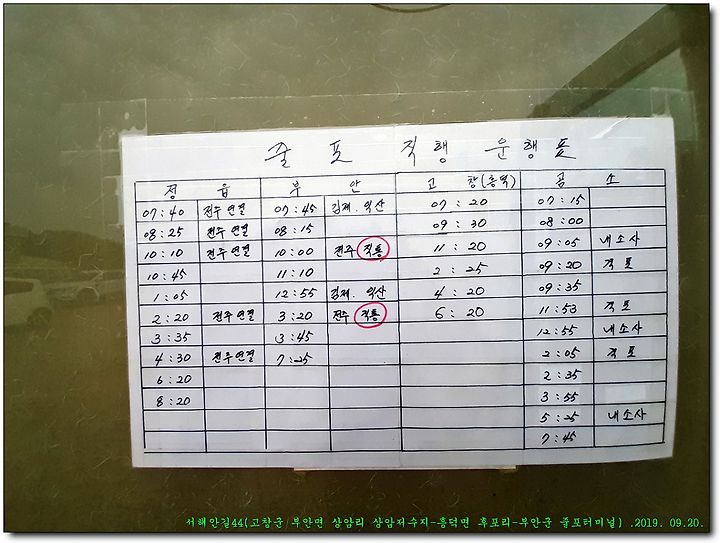 줄 포 직 행 운 행 표
정 읍 부 안 고 창(흥덕) 곰 소
07:40 전주연결 07:45 김제.익산 07:20 07:15
08:25 전주연결 08:15 09:30 08:00
10:10 전주연결 10:00 전주 직통 11:20 09:05 내소사
10:45 11:10 2:25 09:20 격포
1:05 12:55 김제.익산 4:20 09:35
2:20 전주연결 3:20 전주 직통 6:20 11:53 격포
3:35 3:45 12:55 내소사
4:30 전주연결 7:25 2:05 격포
6:20 2:35
8:20 3:55
5:25 내소사
7:45
서해안길44(고창군 부안면 상암리 상암저수지-흥덕면 후포리-부안군 줄포터미널) .2019. 09.20.